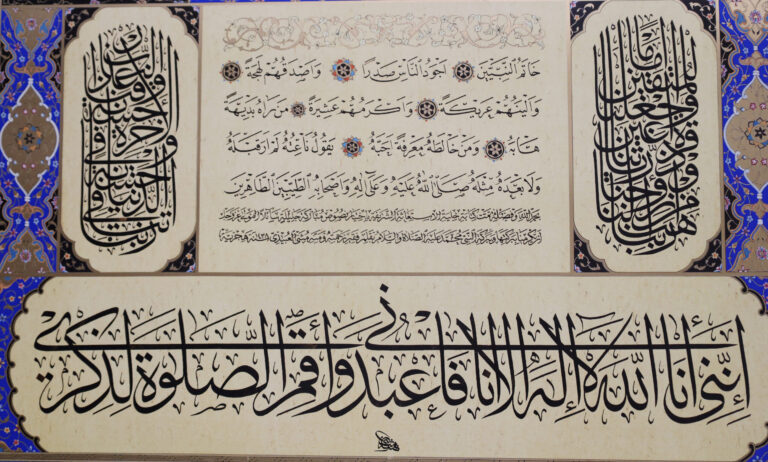 ربنا هب لنا من أزواجنا وذرياتنا قرة أعين واجعلنا للمتقين إماما
خَاتَمُ النَّبِيِّينَ اَجْوَدُ النَّاسِ صَدْرًا وَاَصْدَقُهُمْ لَهْجَةً
وَاَلْيَنُهُمْ عَرِيكَةً وَاَكْرَمُهُمْ عَشِيرَةً مَنْ رَاٰهُ بَدِيهَةً
هَابَهُ وَمَنْ خَالَطَهُ مَعْرِفَةً اَحَبَّهُ يَقُولُ نَاعِتُهُ لَمْ اَرَ قَبْلَهُ
وَلَا بَعْدَهُ مِثْلَهُ صَلَّى اللهُ عَلَيْهِ وَعَلَى اٰلِهِ وَاَصْحَابِهِ الطَّيِّبِينَ الطَّاهِرِينَ
ربنا آتنا في الدنيا حسنة وفي الآخرة حسنة وقنا عذاب النار
إِنَّنِي أَنَا اللَّهُ لَا إِلَهَ إِلَّا أَنَا فَاعْبُدْنِي وَأَقِمِ الصَّلَوٰةَ لِذِكْرِي